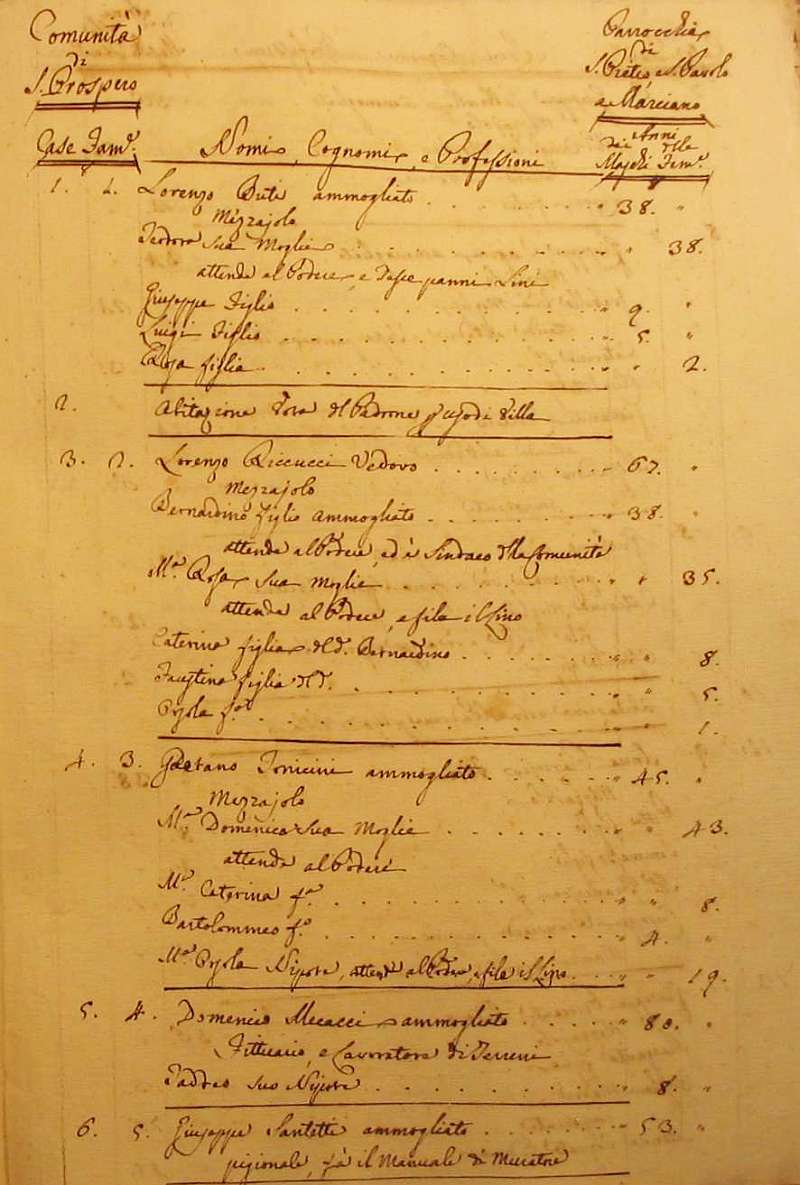 Comunità
di
S. Prospero
Parrocchia
di
S. Pietro, e S. Paolo
a Marciano
Case Famᵉ. Nomi, Cognomi, e Professioni
Anni
dei delle
Maschi Femᵉ.
1. 1. Lorenzo ammogliato . . . . . . . 38. "
Mezzajolo
Teodora sua Moglie . . . . . . . " 38.
attende al Podere, e Tesse panni Lini
Giuseppe Figlio . . . . . . . 9. "
Luigi Figlio . . . . . . . 5. "
Rosa figlia . . . . . . . " 2.
2. Abitazione del Padrone uso di Villa
3. 2. Lorenzo Riccucci Vedovo . . . . . . . 67. "
Mezzajolo
Bernardino figlio ammogliato . . . . . . . 38. "
attende al Podere, ed è Sindaco della Comunità
Mᵃ. Rosa sua moglie . . . . . . . " 35.
attende al Podere, e fila il Lino
Caterina figlia del dᵒ. Bernardino . . . . . . . " 8.
Faustina figlia del dᵒ. . . . . . . . " 5.
Orsola fᵃ. . . . . . . . " 1.
4. 3. Gaetano ammogliato . . . . . . . 45. "
Mezzajolo
Mᵃ. Domenica sua Moglie . . . . . . . " 43.
attende al Podere
Mᵃ. Caterina fᵃ. . . . . . . . " 8.
Bartolommeo fᵒ. . . . . . . . 4. "
Mᵃ. Orsola Nipote, attende al Podere, e fila il Lino . . . " 19.
5. 4. Domenico Mecacci ammogliato . . . . . . . 80. "
Fittuario, e Lavoratore di Terreni
Taddeo suo Nipote . . . . . . . 8. "
6. 5. Giuseppe Santetti ammogliato . . . . . . . 53. "
pigionale, fà il Manuale di Muratore